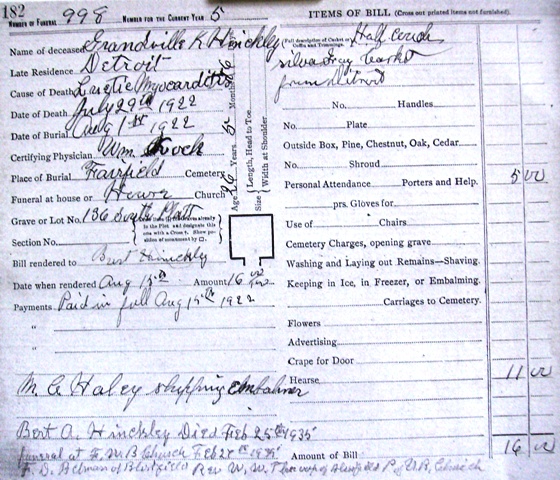 182
NUMBER OF FUNERAL 998 NUMBER FOR THE CURRENT YEAR 5
Name of deceased Grandville K Hinckley
Late Residence Detroit
Cause of Death Luetic Myocarditis
Date of Death July 29th 1922
Date of Burial Aug 1st 1922
Certifying Physician Wm
Place of Burial Fairfield Cemetery
Funeral at house or Church
Grave or Lot No. 136 South Platt
Section No.
Bill rendered to Bert Hinckley
Date when rendered Aug 15th Amount 16 00
Payments Paid in full Aug 15th 1922
"
"
M. C. Haley shipping embalmer
Bert A. Hinckley Died Feb 25th 1935
funeral at F. M. B Church Feb
F. D. of Blissfield Rev W. W. of Blissfield P of U.B. Church
Age 26 Years 5 Months 6
Size { Length, Head to Toe. Width at Shoulder.
ITEMS OF BILL (Cross out printed items not furnished).
(Full description of Casket or Coffin and Trimmings. Half Couch
silver Gray Casket
from Detroit
No. Handles
No. Plate
Outside Box, Pine, Chestnut, Oak, Cedar
No. Shroud
Personal Attendance Porters and Help. 5 00
prs. Gloves for
Use of Chairs
Cemetery Charges, opening grave
Washing and Laying out Remains—Shaving.
Keeping in Ice, in Freezer, or Embalming.
Carriages to Cemetery.
Flowers
Advertising
Crape for Door
Hearse 11 00
Amount of Bill 16 00